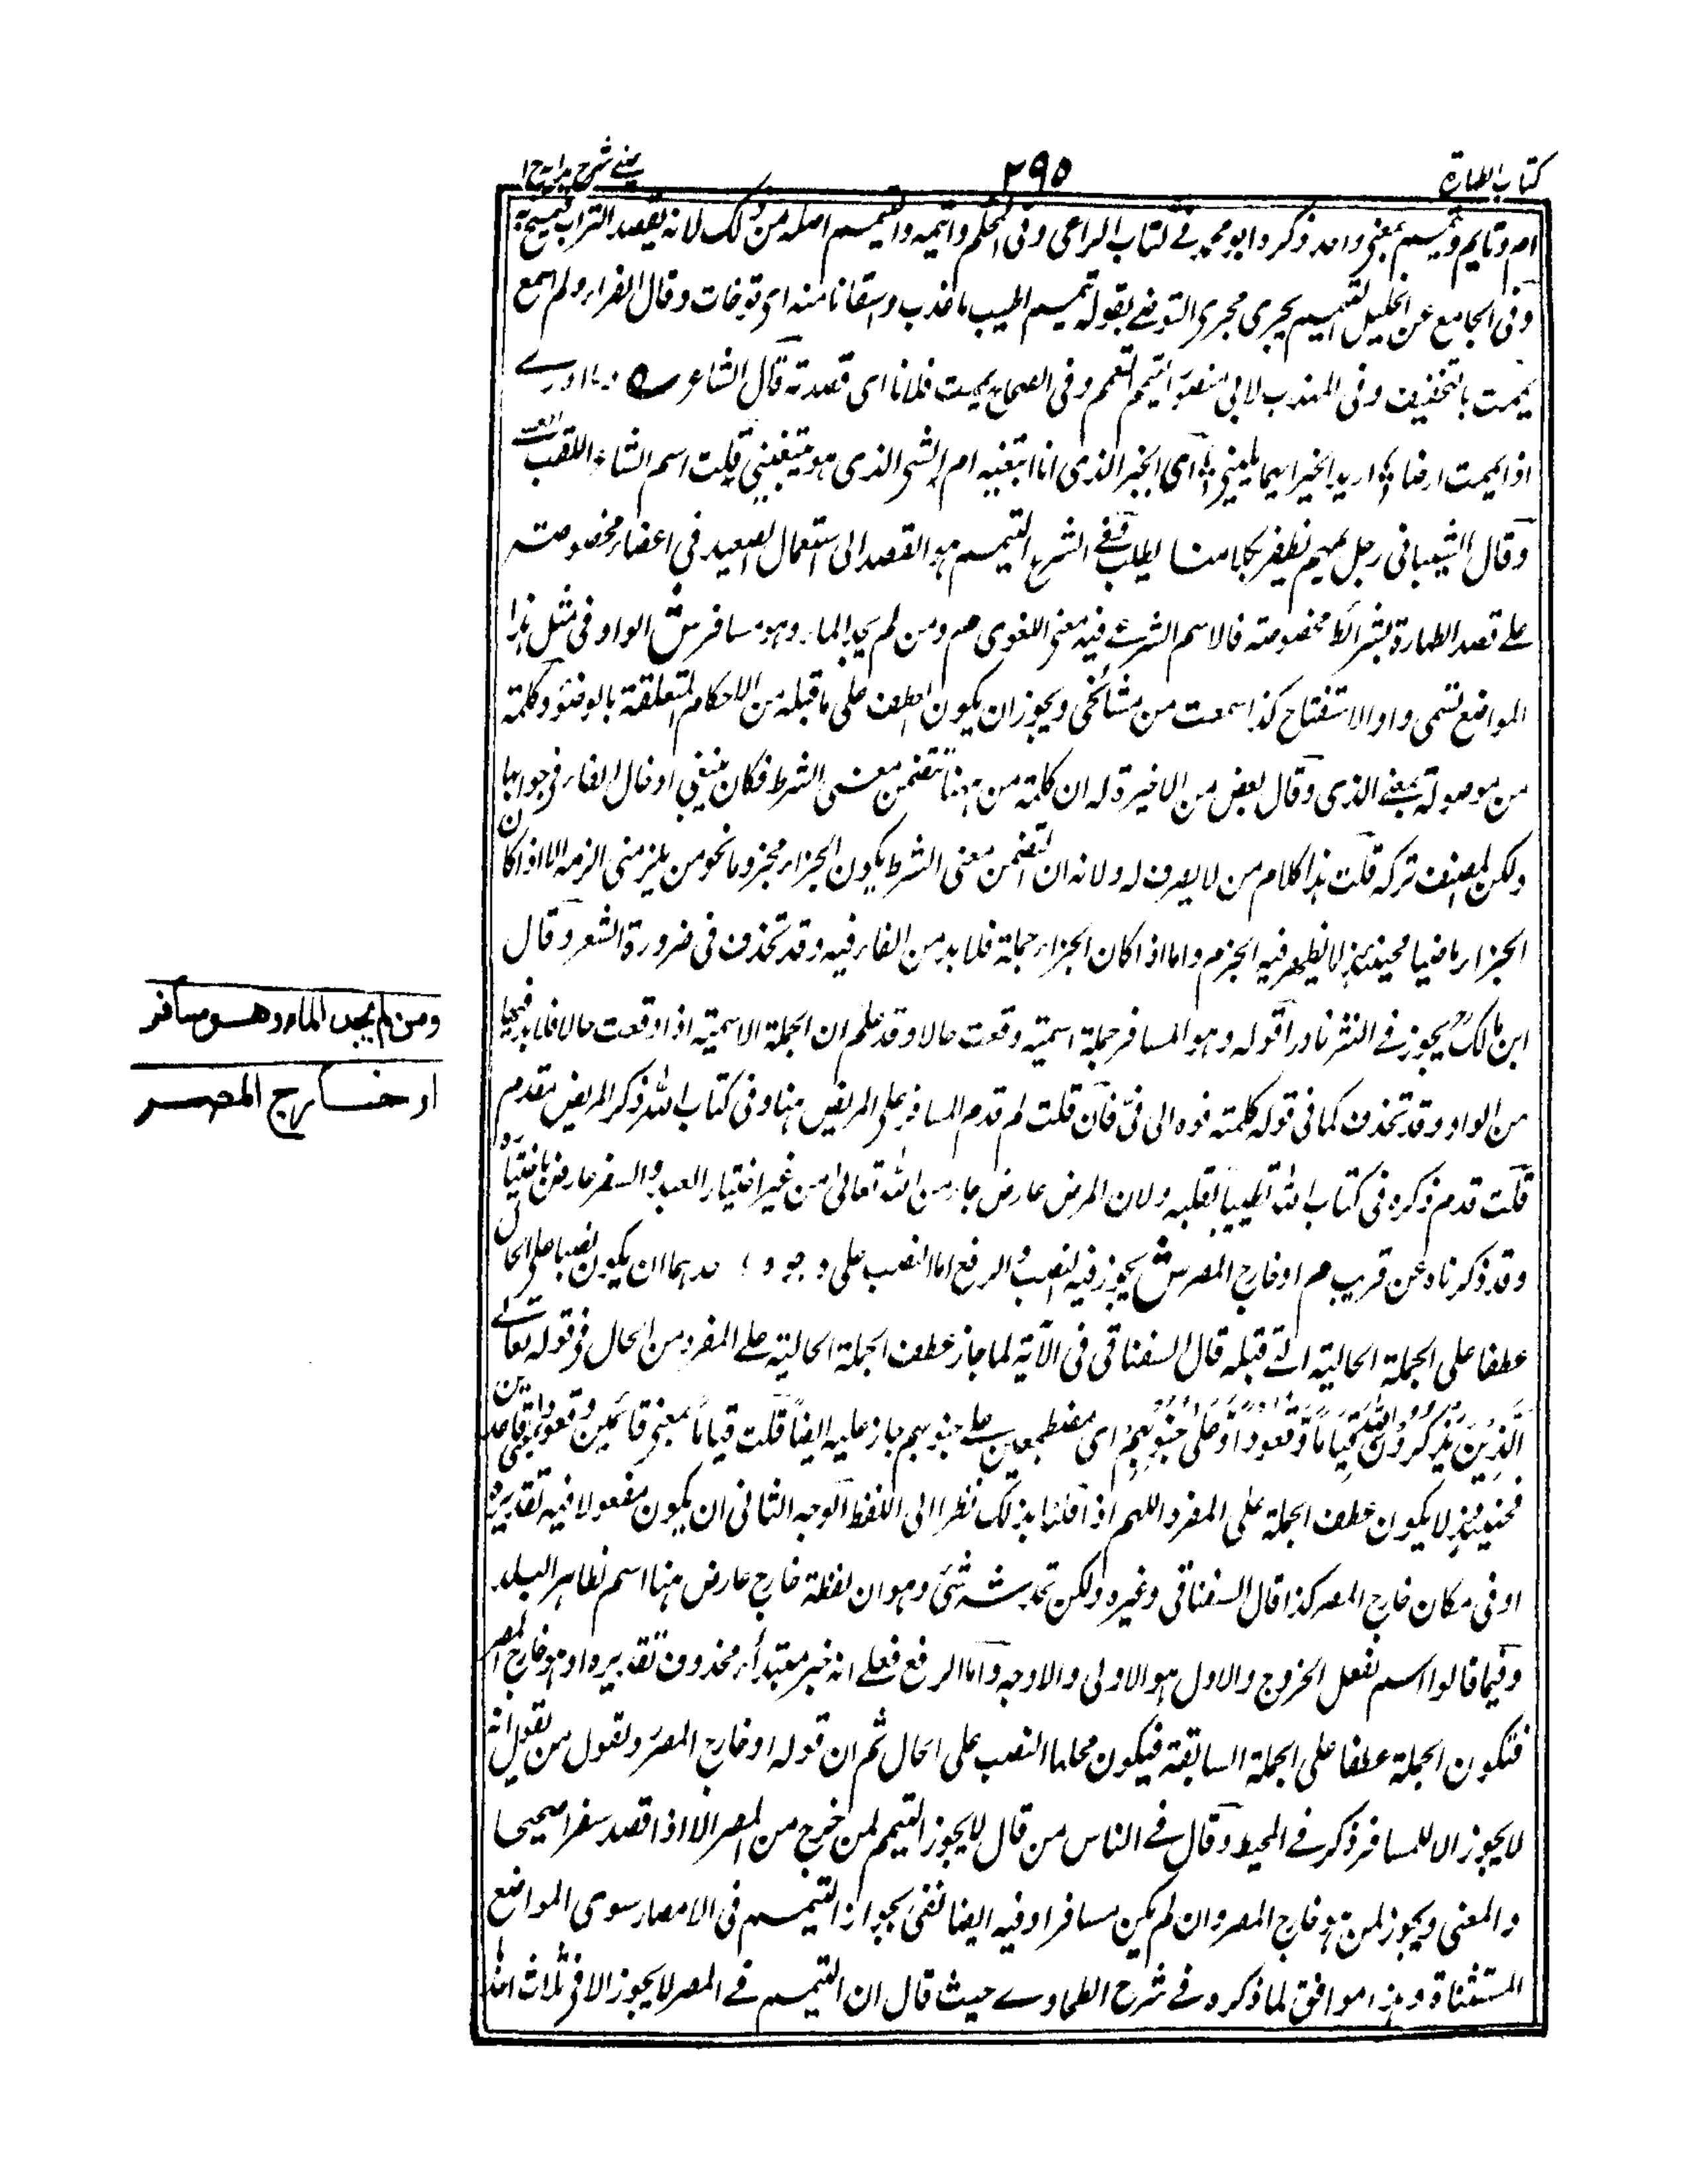 كتاب الطهارة
٢٩٥
عينى شرح هداية ج ١
ام وتايم وتيمم بمعنى واحد ذكره ابو محمد فى كتاب الراعى وفى المحكم واتيمه والتيمم اصله من ذلك لانه يقصد التراب فيمسح به
وفى الجامع عن الخليل التيمم يجرى مجرى التوضى بقوله تيمم اطيب ما عندك اى توخات وقال الفراء ولم اسمع
يممت بالتخفيف وفى المهذب لابى منصور التيمم التعمد وفى الصحاح يممت فلانا اى قصدته قال الشاعر ه وما ادرى
اذا يممت ارضا اريد الخير ايهما يلينى اى الخير الذى انا ابتغيه ام الشر الذى هو يبتغينى قلت اسم الشاعر المثقب العبدى
وقال الشيبانى رجل ميمم يظفر بكل ما يطلب وفى الشرع التيمم هو القصد الى استعمال الصعيد فى اعضاء مخصوصة
على قصد الطهارة بشرائط مخصوصة فالاسم الشرعى فيه معنى اللغوى م ومن لم يجد الماء وهو مسافر ش الواو فى مثل هذا
المواضع تسمى واو الاستفتاح كذا سمعت من مشائخى ويجوز ان يكون العطف على ما قبله من الاحكام المتعلقة بالوضوء وكلمة
من موصولة بمعنى الذى وقال بعض من لا خبرة له ان كلمة من ههنا تتضمن معنى الشرط فكان ينبغى ادخال الفاء فى جوابها
ولكن المصنف تركه قلت هذا كلام من لا يصرف له ولانه ان تضمن معنى الشرط يكون الجزاء مجزوما نحو من يلزمنى الزمه الا اذا كان
الجزاء ماضيا فحينئذ لا يظهر فيه الجزم واما اذا كان الجزاء جملة فلا بد من الفاء فيه وقد تحذف فى ضرورة الشعر وقال
ابن مالك يجوز فى النثر نادرا قوله وهو المسافر جملة اسمية وقعت حالا وقد علم ان الجملة الاسمية اذا وقعت حالا فلا بد فيها
من الواو وقد تحذف كما فى قوله كلمته فوه الى فى فان قلت لم قدم المسافر على المريض هنا وفى كتاب الله ذكر المريض مقدم
قلت قدم ذكره فى كتاب الله تطييبا لقلبه ولان المرض عارض جاء من الله تعالى من غير اختيار العبد والسفر عارض باختياره
وقد ذكرناه عن قريب م او خارج المصر ش يجوز فيه النصب والرفع اما النصب على وجوه احدهما ان يكون نصبا على الحال
عطفا على الجملة الحالية التى قبله قال السغناقى فى الآية لما جاز عطف الجملة الحالية على المفرد من الحال فى قوله تعالى
الَّذِينَ يَذْكُرُونَ اللَّهَ قِيَامًا وَقُعُودًا وَعَلَى جُنُوبِهِمْ اى مضطجعين على جنوبهم جاز عليه ايضا قلت قياما بمعنى قائمين وقعودا بمعنى قاعدين
فحينئذ لا يكون عطف الجملة على المفرد اللهم اذا قلنا بذلك نظرا الى اللفظ الوجه الثانى ان يكون مفعولا فيه تقديره
او فى مكان خارج المصر كذا قال السغناقى وغيره ولكن تحدسه شئ وهو ان لفظة خارج عارض هنا اسم لظاهر البلد
وفيما قالوا اسم لفعل الخروج والاول هو الاولى والاوجه واما الرفع فعلى انه خبر مبتدأ محذوف تقديره او هو خارج المصر
فتكون الجملة عطفا على الجملة السابقة فيكون محلها النصب على الحال ثم ان قوله او خارج المصر ولقول من يقول انه
لا يجوز الا للمسافر ذكر فى المحيط وقال فى الناس من قال لا يجوز التيمم لمن خرج من المصر الا اذا قصد سفرا صحيحا
والمعنى ويجوز لمن هو خارج المصر وان لم يكن مسافرا وفيه ايضا نفى بجواز التيمم فى الامصار سوى المواضع
المستثناة وهذا موافق لما ذكره فى شرح الطحاوى حيث قال ان التيمم فى المصر لا يجوز الا فى ثلاث
ومن لم يجد الماء وهو مسافر
او خارج المصر